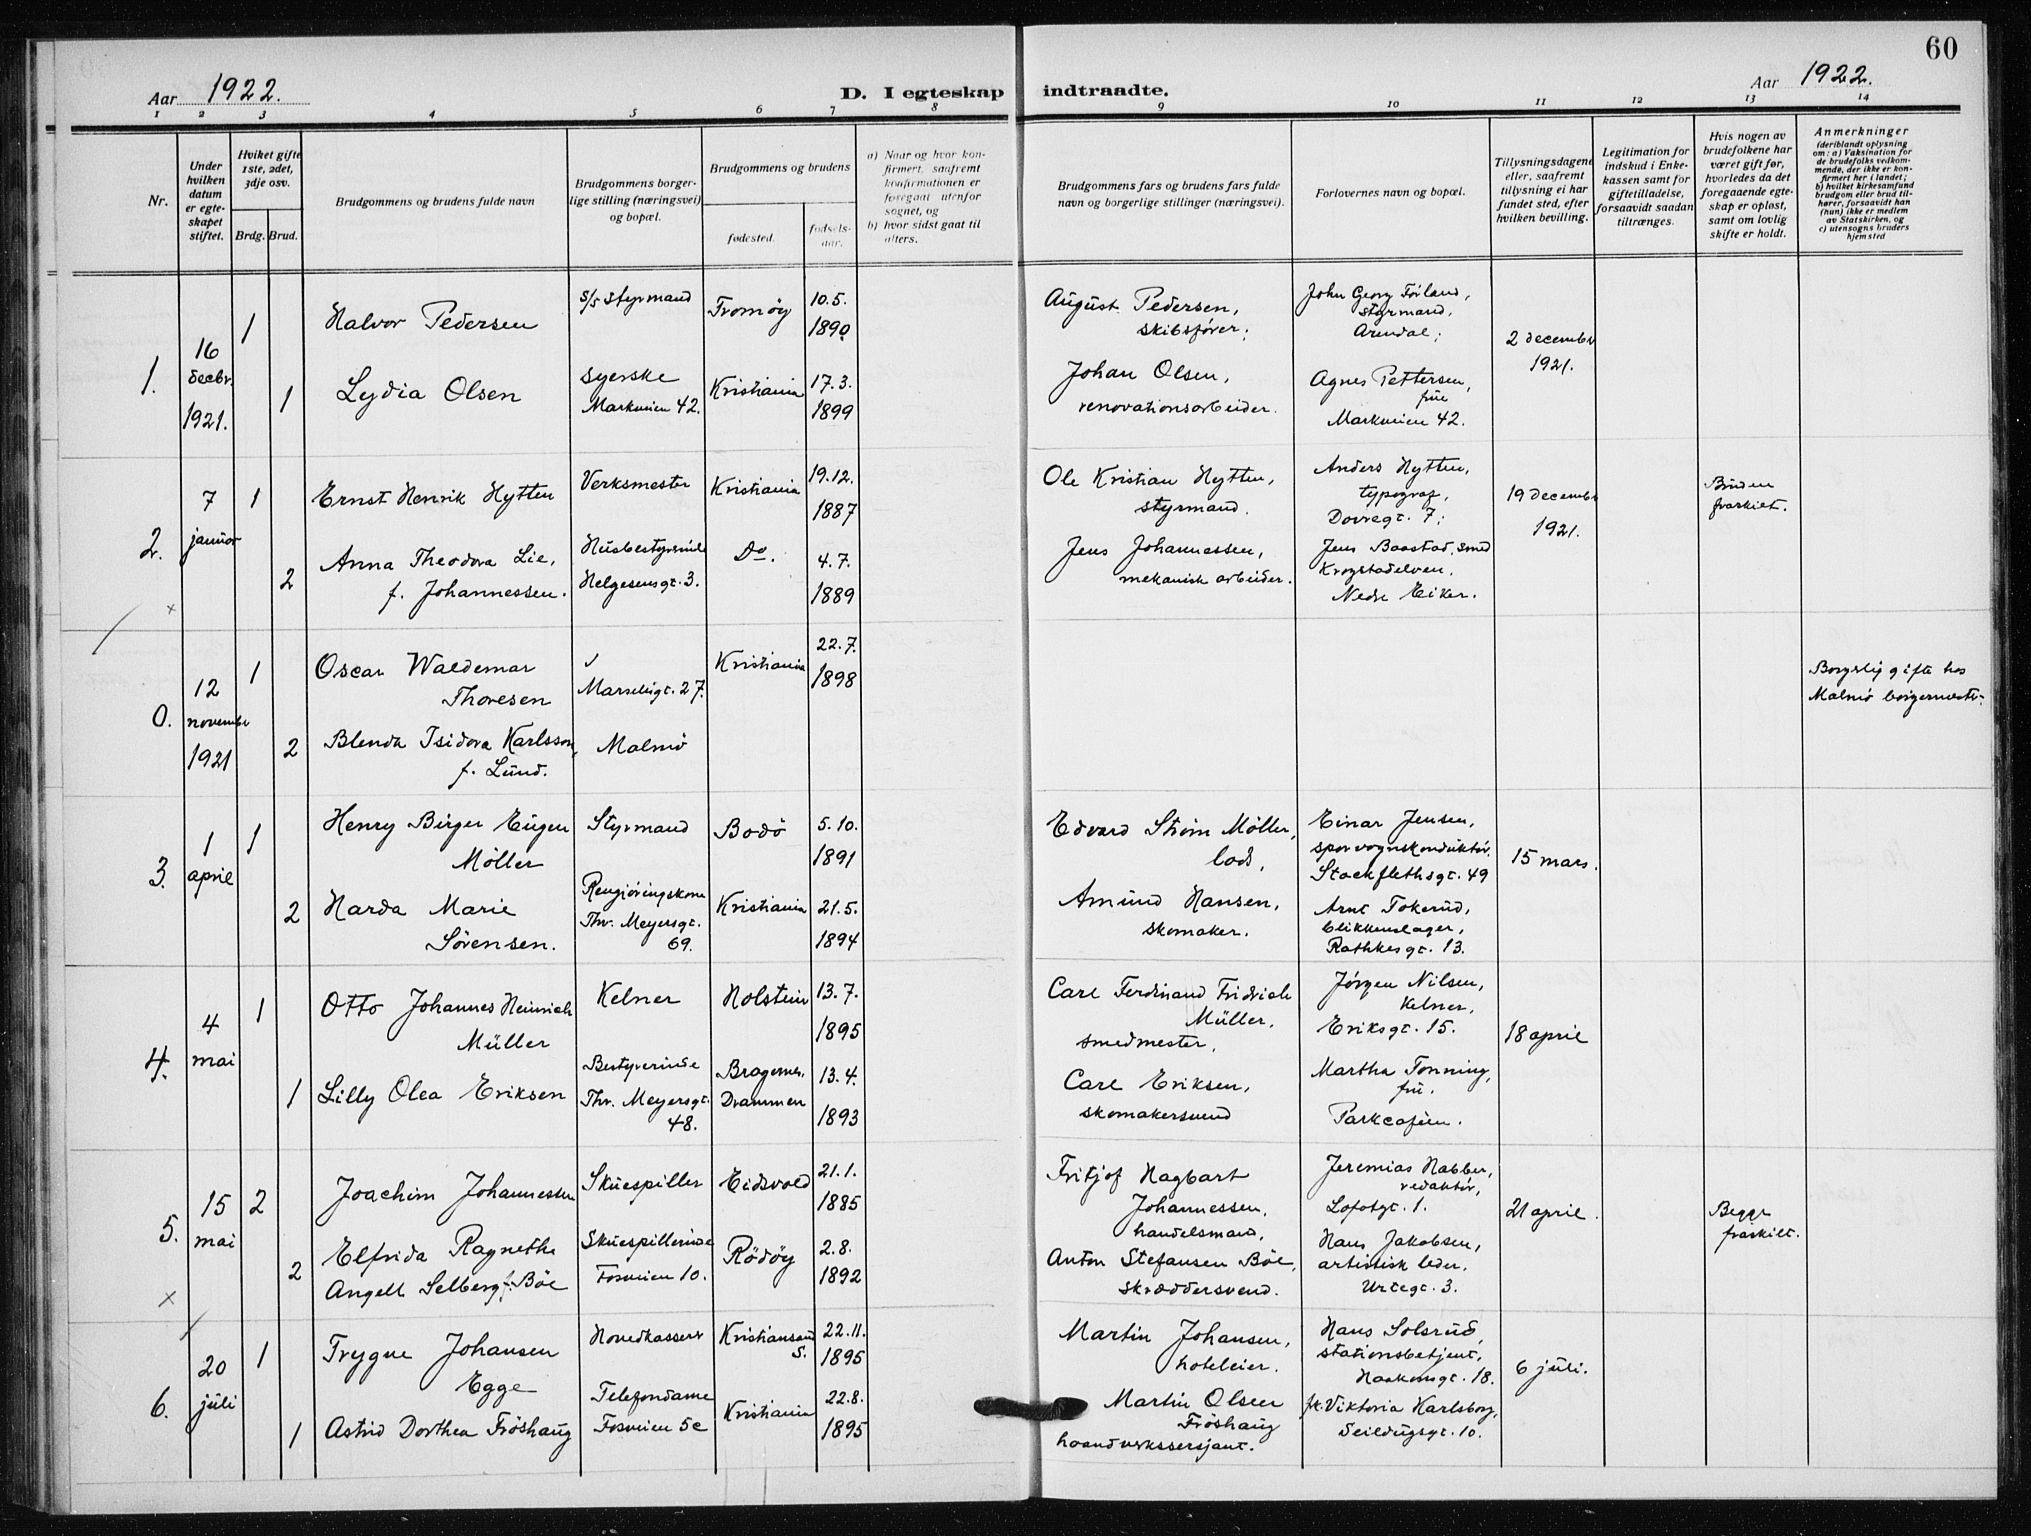 60
Aar 1922.
D. I egteskap indtraadte.
Aar 1922.
1 2 3 4 5 6 7 8 9 10 11 12 13 14
Nr.
Under
hvilken
datum
er egte-
skapet
stiftet.
Hvilket gifte
1ste, 2det,
3dje osv.
Brdg. Brud.
Brudgommens og brudens fulde navn
Brudgommens borger-
lige stilling (næringsvei)
og bopæl.
Brudgommens og brudens
fødested.
fødsels-
aar.
a) Naar og hvor kon-
firmert, saafremt
konfirmationen er
foregaat utenfor
sognet, og
b) hvor sidst gaat til
alters.
Brudgommens fars og brudens fars fulde
navn og borgerlige stillinger (næringsvei).
Forlovernes navn og bopæl.
Tillysningsdagene
eller, saafremt
tillysning ei har
fundet sted, efter
hvilken bevilling.
Legitimation for
indskud i Enke-
kassen samt for
giftetilladelse,
forsaavidt saadan
tiltrænges.
Hvis nogen av
brudefolkene har
været gift før,
hvorledes da det
foregaaende egte-
skap er opløst,
samt om lovlig
skifte er holdt.
Anmerkninger
(deriblandt oplysning
om: a) Vaksination for
de brudefolks vedkom-
mende, der ikke er kon-
firmert her i landet;
b) hvilket kirkesamfund
brudgom eller brud til-
hører, forsaavidt han
(hun) ikke er medlem
av Statskirken, og
c) utensogns bruders
hjemsted
1.
16
decbr.
1921.
1
Halvor Pedersen
s/s styrmand
Tromøy
10.5.
1890
August Pedersen,
skibsfører;
John Georg Förland,
styrmand,
Arendal;
2 decembr
1921.
1
Lydia Olsen
syerske
Markveien 42.
Kristiania
17.3.
1899
Johan Olsen,
renovationsarbeider.
Agnes Pettersen,
frue
Markveien 42.
2.
7
januar
1
Ernst Henrik Hytten
Verksmester
Kristiania
19.12.
1887
Ole Kristian Hytten,
styrmand.
Anders Hytten,
typograf,
Dovregt. 7;
19 decembr
1921.
Bruden
fraskilt.
2
Anna Theodora Lie,
f. Johannessen.
Husbestyrerinde
Helgesensgt. 3.
Do.
4.7.
1889
Jens Johannessen,
mekanisk arbeider.
Jens Baastad, smed
Krogstadelven,
Nedre Eiker.
0.
12
novembr
1921
1
Oscar Waldemar
Thoresen
Marseliigt. 27.
Kristiania
22.7.
1898
Borgerlig gifte hos
Malmø borgermestr.
2
Blenda Isidora Karlsson,
f. Lund.
Malmö
3.
1
april
1
Henry Birger Eugen
Möller
Styrmand
Bodö
5.10.
1891
Edvard Strøm Möller,
lods,
Einar Jensen,
sporvognskonduktør.
Stockflethsgt. 49
15 mars.
2
Harda Marie
Sörensen.
Rengjøringskone
Thv. Meyersgt.
69.
Kristiania
21.5.
1894
Amund Hansen,
skomaker.
Arnt Tokerud,
blikkenslager,
Rathkesgt. 13.
4.
4
mai
1
Otto Johannes Heinrich
Müller
Kelner
Holstein
13.7.
1895
Carl Ferdinand Fridrich
Müller,
smedmester,
Jørgen Nilsen,
Kelner,
Eriksgt. 15.
18 april
1
Lilly Olea Eriksen
Bestyrerinde
Thv. Meyersgt.
48.
Bragernes,
Drammen
13.4.
1893
Carl Eriksen,
skomakersvend
Martha Tonning,
fru.
Parkcaféen.
5.
15
mai
2
Joachim Johannessen
Skuespiller
Eidsvold
21.1.
1885
Fritjof Hagbart
Johannessen,
handelsmand,
Jeremias Habber,
redaktør,
Lofotgt. 1.
21 april.
Begge
fraskilt.
2
Elfrida Ragnethe
Angell Selberg f. Böe
Skuespillerinde
Fosveien 10.
Rödöy
2.8.
1892
Anton Stefansen Böe,
skræddersvend.
Hans Jakobsen,
artistisk leder.
Urtegt. 3.
6.
20
juli
1
Trygve Johansen
Egge
Hovedkasserer
Kristiansand
S.
22.11.
1895
Martin Johansen,
hoteleier.
Hans Solsrud,
stationsbetjent,
Haakonsgt. 18.
6 juli.
1
Astrid Dorthea Fröshaug
Telefondame
Fosveien 5c
Kristiania
22.8.
1895
Martin Olsen
Fröshaug
haandverkssersjant.
fr. Viktoria Karlsborg,
Seildugsgt. 10.